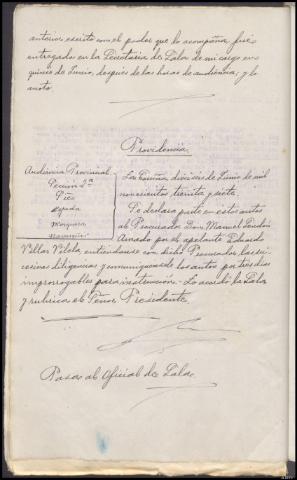 anterior escrito con el poder que lo acompaña fué
entregado en la Secretaria de Sala de mi cargo en
quince de Junio, despues de las horas de audiencia; y lo
anoto.
Providencia.
Audiencia Provincial
Seccion 2ª
Pico
Tejada
La Coruña dieciseis de Junio de mil
novecientos treinta y siete
Se declara parte en estos autos
al Procurador Don Manuel
Amado por el apelante Eduardo
Villar Vilela, entiendanse con dicho Procurador las su-
cesivas diligencias y comuniquensele los autos por tres dias
improrrogables para instruccion.- Lo acordó la Sala
y rubrica el Señor Presidente.
Pasa al Oficial de Sala.